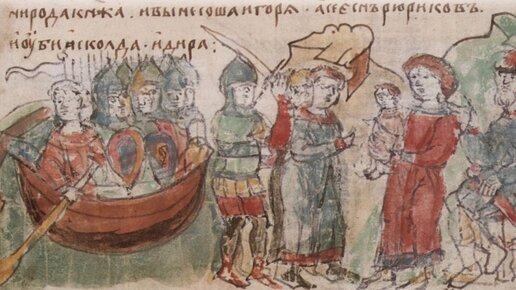 ниродакнѧжа · ивынесошаигорѧ · асеєснърюриковъ ·
иоубишасколда · идира :